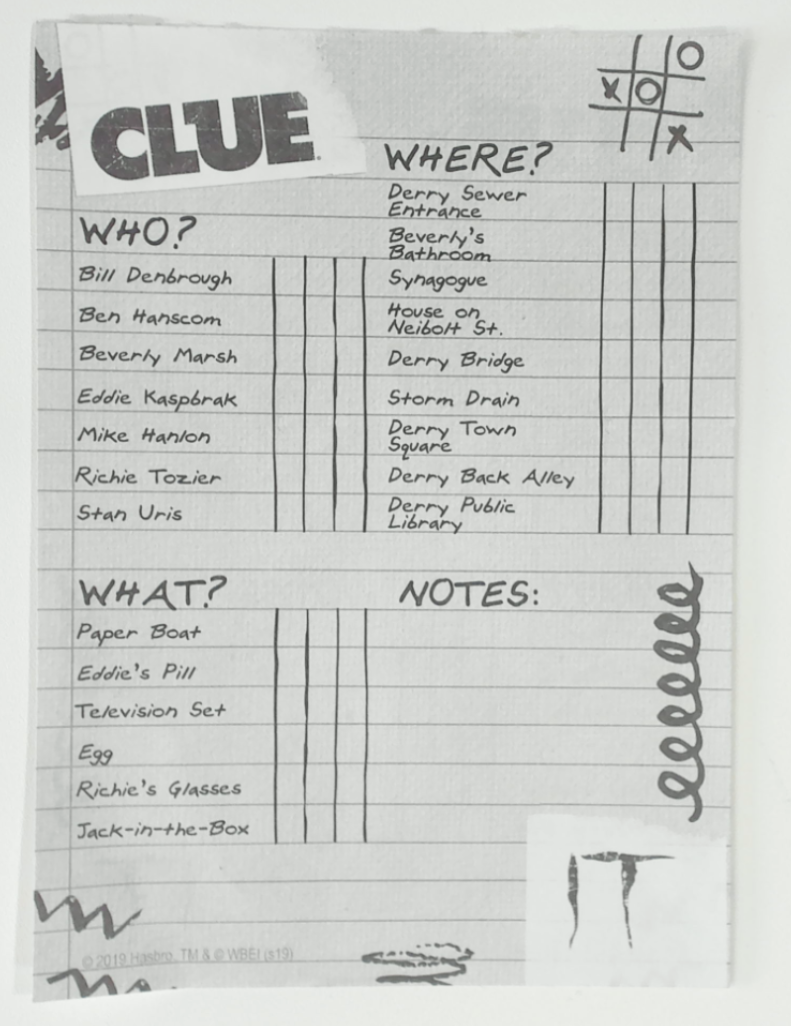 CLUE
WHO?
Bill Denbrough
Ben Hanscom
Beverly Marsh
Eddie Kaspbrak
Mike Hanlon
Richie Tozier
Stan Uris
WHERE?
Derry Sewer
Entrance
Beverly's
Bathroom
Synagogue
House on
Neibolt St.
Derry Bridge
Storm Drain
Derry Town
Square
Derry Back Alley
Derry Public
Library
WHAT?
Paper Boat
Eddie's Pill
Television Set
Egg
Richie's Glasses
Jack-in-the-Box
NOTES:
IT
© 2019 Hasbro. TM & © WBEI (s19)
O
X O
X